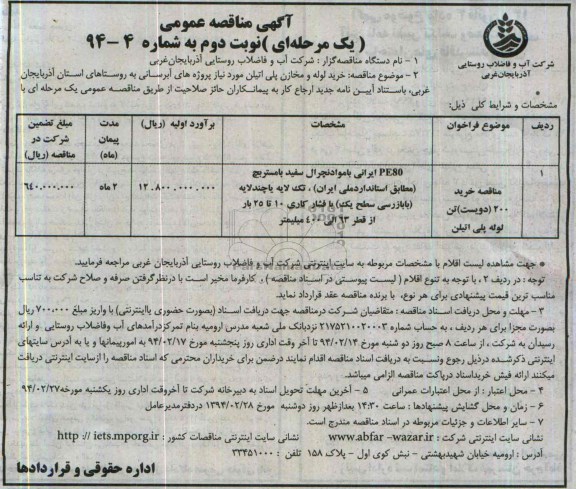 آگهی مناقصه عمومی
( یک مرحله‌ای )نوبت دوم به شماره ۴ - ۹۴
شرکت آب و فاضلاب روستایی
آذربایجان‌غربی
۱ - نام دستگاه مناقصه‌گزار : شرکت آب و فاضلاب روستایی آذربایجان‌غربی
۲ - موضوع مناقصه: خرید لوله و مخازن پلی اتیلن مورد نیاز پروژه های آبرسانی به روستاهای استان آذربایجان
غربی، باستناد آیین نامه جدید ارجاع کار به پیمانکاران حائز صلاحیت از طریق مناقصه عمومی یک مرحله ای با
مشخصات و شرایط کلی ذیل:
ردیف
موضوع فراخوان
مشخصات
برآورد اولیه (ریال)
مدت پیمان (ماه)
مبلغ تضمین شرکت در مناقصه (ریال)
۱
مناقصه خرید
۲۰۰ (دویست)تن
لوله پلی اتیلن
PE80 ایرانی باموادنچرال سفید بامستربچ
(مطابق استانداردملی ایران) ، تک لایه یاچندلایه
(بابازرسی سطح یک) با فشار کاری ۱۰ تا ۲۵ بار
از قطر ۶۳ الی ۴۰۰ میلیمتر
۱۲.۸۰۰.۰۰۰.۰۰۰
۲ ماه
۶۴۰.۰۰۰.۰۰۰
● جهت مشاهده لیست اقلام با مشخصات مربوطه به سایت اینترنتی شرکت آب و فاضلاب روستایی آذربایجان غربی مراجعه فرمایید.
توجه : در ردیف ۲ ، با توجه به تنوع اقلام ( لیست پیوستی در اسناد مناقصه ) ، کارفرما مخیر است با درنظرگرفتن صرفه و صلاح شرکت به تناسب
مناسب ترین قیمت پیشنهادی برای هر نوع، با برنده مناقصه عقد قرارداد نماید.
۳ - مهلت و محل دریافت اسناد مناقصه: متقاضیان شرکت درمناقصه جهت دریافت اسناد (بصورت حضوری یااینترنتی) با واریز مبلغ ۷۰۰.۰۰۰ ریال
بصورت مجزا برای هر ردیف ، به حساب شماره ۲۱۷۵۲۱۰۰۲۰۰۰۳ نزدبانک ملی شعبه مدرس ارومیه بنام تمرکزدرآمدهای آب وفاضلاب روستایی و ارائه
رسیدان به شرکت، از ساعت ۸ صبح روز دو شنبه مورخ ۹۴/۰۲/۱۴ تا آخر وقت اداری روز پنجشنبه مورخ ۹۴/۰۲/۱۷ به امورپیمانها و یا به آدرس سایتهای
اینترنتی ذکرشده درذیل رجوع ونسبت به دریافت اسناد مناقصه اقدام نمایند درضمن برای خریداران محترمی که اسناد مناقصه را ازسایت اینترنتی دریافت
میکنند ارائه فیش خریداسناد درپاکت مناقصه الزامی میباشد.
۴ - محل اعتبار : از محل اعتبارات عمرانی ۵ - آخرین مهلت تحویل اسناد به دبیرخانه شرکت تا آخروقت اداری روز یکشنبه مورخه۹۴/۰۲/۲۷
۶ - زمان و محل گشایش پیشنهادها : ساعت ۱۴:۳۰ بعدازظهر روز دوشنبه مورخ ۱۳۹۴/۰۲/۲۸ دردفترمدیرعامل
۷ - سایر اطلاعات و جزئیات مربوطه در اسناد مناقصه مندرج است.
نشانی سایت اینترنتی شرکت : www.abfar -wazar.ir نشانی سایت اینترنتی مناقصات کشور : http // iets.mporg.ir
آدرس : ارومیه خیابان شهیدبهشتی - نبش کوی اول - پلاک ۱۵۸ تلفن : ۳۳۴۵۱۰۰۰
اداره حقوقی و قراردادها